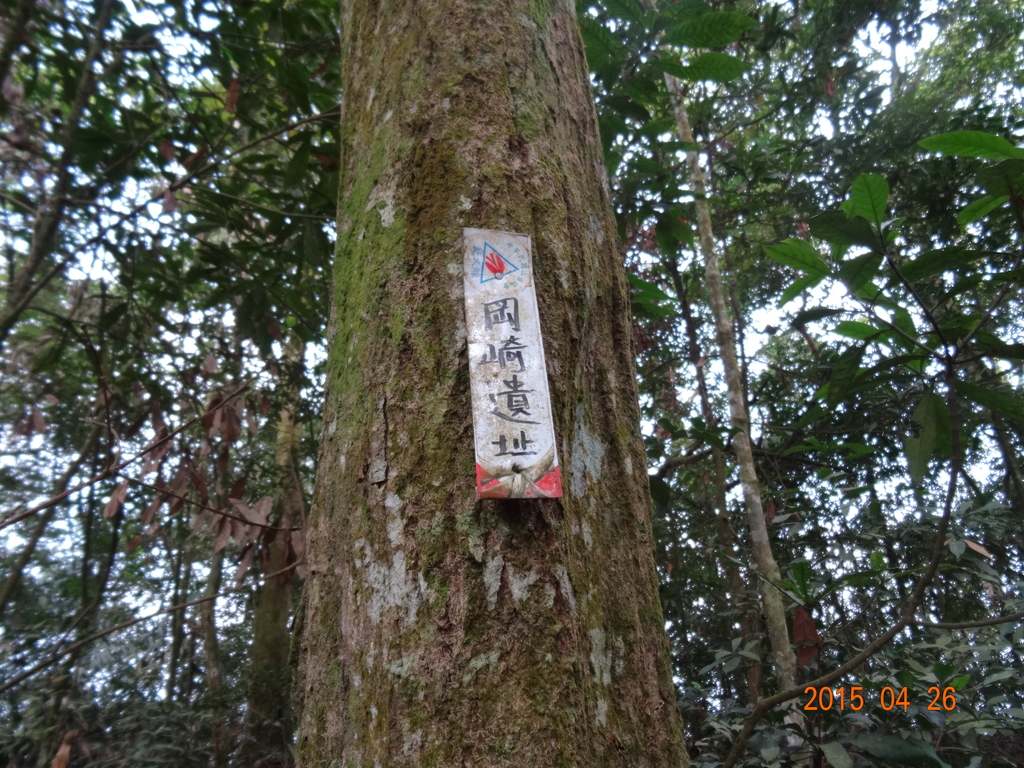 岡崎遺址
2015 04 26